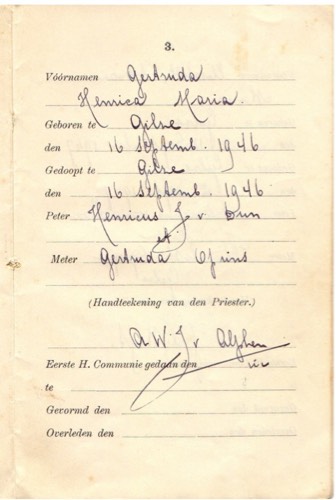 3.
Vóórnamen Gertruda
Henrica Maria.
Geboren te Gilze
den 16 Septemb. 1946
Gedoopt te Gilze
den 16 Septemb. 1946
Peter Henricus J v Dun
et
Meter Gertruda Oprins
(Handteekening van den Priester.)
A. W. J. v Alphen
Eerste H. Communie gedaan den
te
Gevormd den
Overleden den